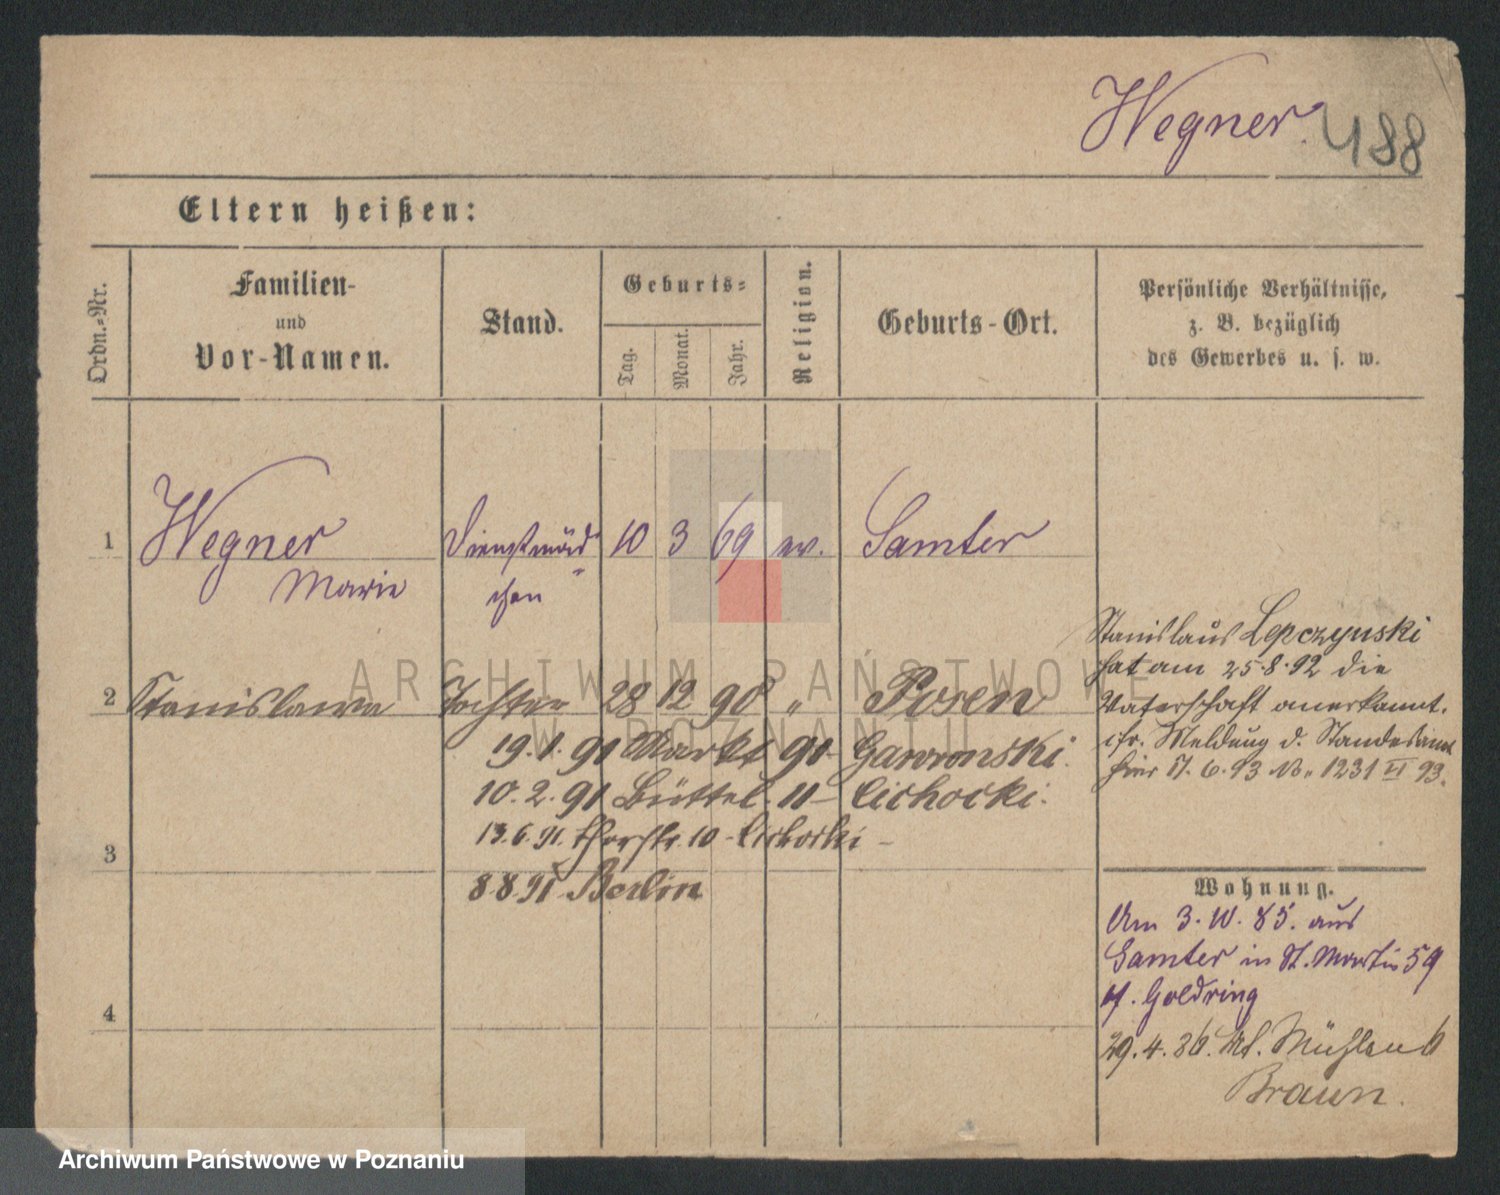 Wegner. 488
Eltern heißen:
Ordn.-Nr.
Familien-
und
Vor-Namen.
Stand.
Geburts-
Tag.
Monat.
Jahr.
Religion.
Geburts-Ort.
Persönliche Verhältnisse,
z. B. bezüglich
des Gewerbes u. s. w.
1 Wegner Dienstmäd- 10 3 69 ev. Samter
Marie chen
Stanislaus Lepczynski
hat am 25.8.92 die
Vaterschaft anerkannt.
Meldung d. Standesamt
hier 17.6.93 No. 1231 VI 93.
2 Stanislawa Tochter 28 12 90 " Posen
19.1.91 Markt 91 Gawronski.
10.2.91 Büttel. 11 - Cichocki.
13.6.91. 10 - Cichocki -
3
8.8.91 Berlin
Wohnung.
Am 3.10.85. aus
Samter in St. Martin 59
Goldring
4
29.4.86. Mühlen 6
Braun.
ARCHIWUM PAŃSTWOWE
W POZNANIU
Archiwum Państwowe w Poznaniu